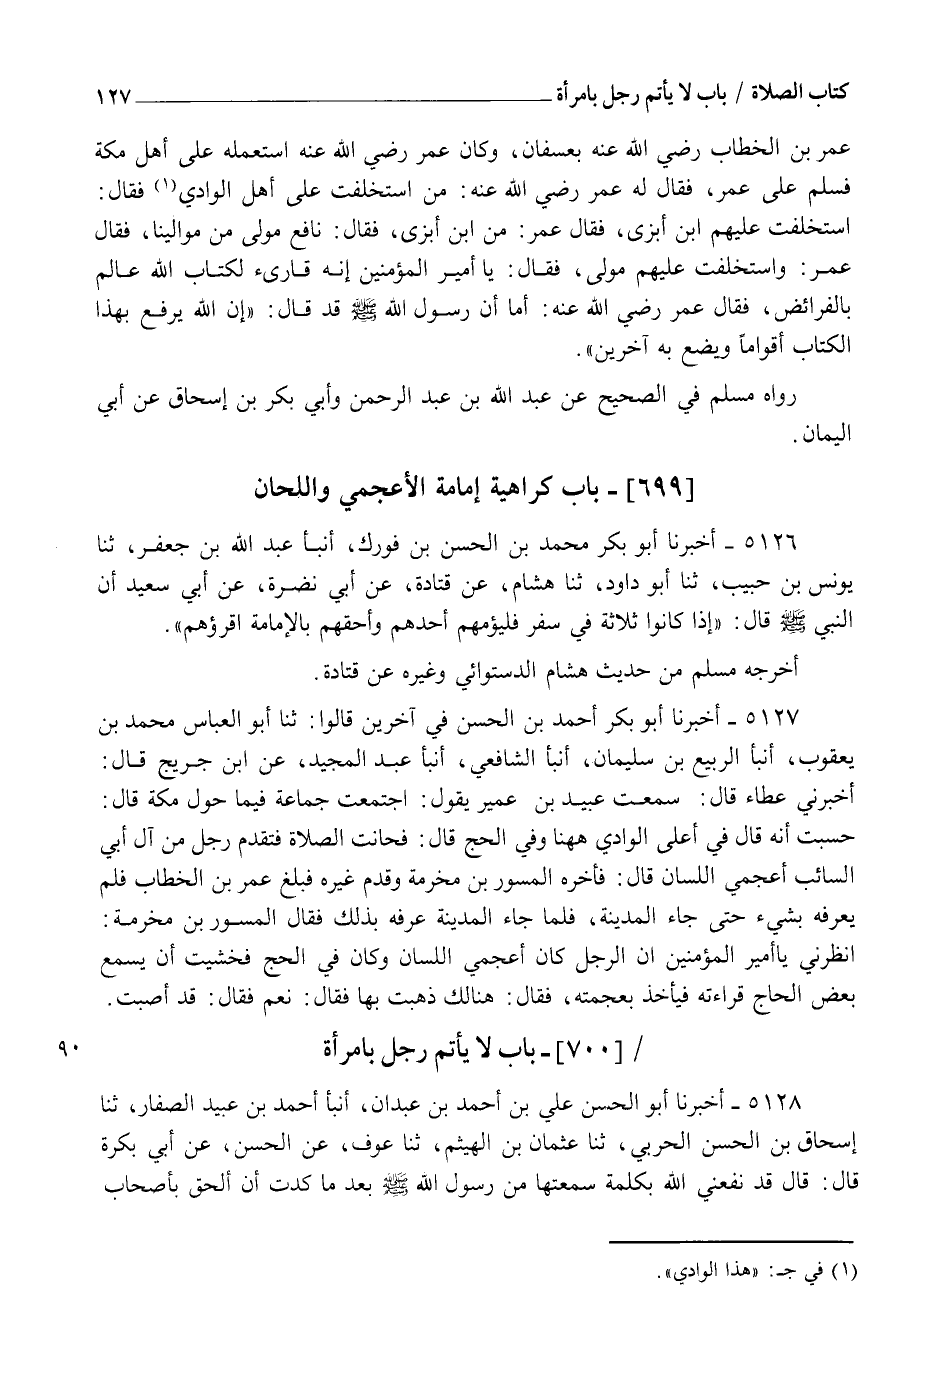 كتاب الصلاة / باب لا يأتم رجل بامرأة ١٢٧
عمر بن الخطاب رضي الله عنه بعسفان، وكان عمر رضي الله عنه استعمله على أهل مكة
فسلم على عمر، فقال له عمر رضي الله عنه: من استخلفت على أهل الوادي(١) فقال:
استخلفت عليهم ابن أبزى، فقال عمر: من ابن أبزى، فقال: نافع مولى من موالينا، فقال
عمر: واستخلفت عليهم مولى، فقال: يا أمير المؤمنين إنه قارىء لكتاب الله عالم
بالفرائض، فقال عمر رضي الله عنه: أما أن رسول الله ﷺ قد قال: «إن الله يرفع بهذا
الكتاب أقواماً ويضع به آخرين».
رواه مسلم في الصحيح عن عبد الله بن عبد الرحمن وأبي بكر بن إسحاق عن أبي
اليمان.
[٦٩٩] ـ باب كراهية إمامة الأعجمي واللحان
٥١٢٦ ـ أخبرنا أبو بكر محمد بن الحسن بن فورك، أنبأ عبد الله بن جعفر، ثنا
يونس بن حبيب، ثنا أبو داود، ثنا هشام، عن قتادة، عن أبي نضرة، عن أبي سعيد أن
النبي ﷺ قال: «إذا كانوا ثلاثة في سفر فليؤمهم أحدهم وأحقهم بالإمامة اقرؤهم».
أخرجه مسلم من حديث هشام الدستوائي وغيره عن قتادة.
٥١٢٧ ـ أخبرنا أبو بكر أحمد بن الحسن في آخرين قالوا: ثنا أبو العباس محمد بن
يعقوب، أنبأ الربيع بن سليمان، أنبأ الشافعي، أنبأ عبد المجيد، عن ابن جريج قال:
أخبرني عطاء قال: سمعت عبيد بن عمير يقول: اجتمعت جماعة فيما حول مكة قال:
حسبت أنه قال في أعلى الوادي ههنا وفي الحج قال: فحانت الصلاة فتقدم رجل من آل أبي
السائب أعجمي اللسان قال: فأخره المسور بن مخرمة وقدم غيره فبلغ عمر بن الخطاب فلم
يعرفه بشيء حتى جاء المدينة، فلما جاء المدينة عرفه بذلك فقال المسور بن مخرمة:
انظرني ياأمير المؤمنين ان الرجل كان أعجمي اللسان وكان في الحج فخشيت أن يسمع
بعض الحاج قراءته فيأخذ بعجمته، فقال: هنالك ذهبت بها فقال: نعم فقال: قد أصبت.
/ [٧٠٠] ـ باب لا يأتم رجل بامرأة ٩٠
٥١٢٨ ـ أخبرنا أبو الحسن علي بن أحمد بن عبدان، أنبأ أحمد بن عبيد الصفار، ثنا
إسحاق بن الحسن الحربي، ثنا عثمان بن الهيثم، ثنا عوف، عن الحسن، عن أبي بكرة
قال: قال قد نفعني الله بكلمة سمعتها من رسول الله ﷺ بعد ما كدت أن ألحق بأصحاب
(١) في جـ: «هذا الوادي».